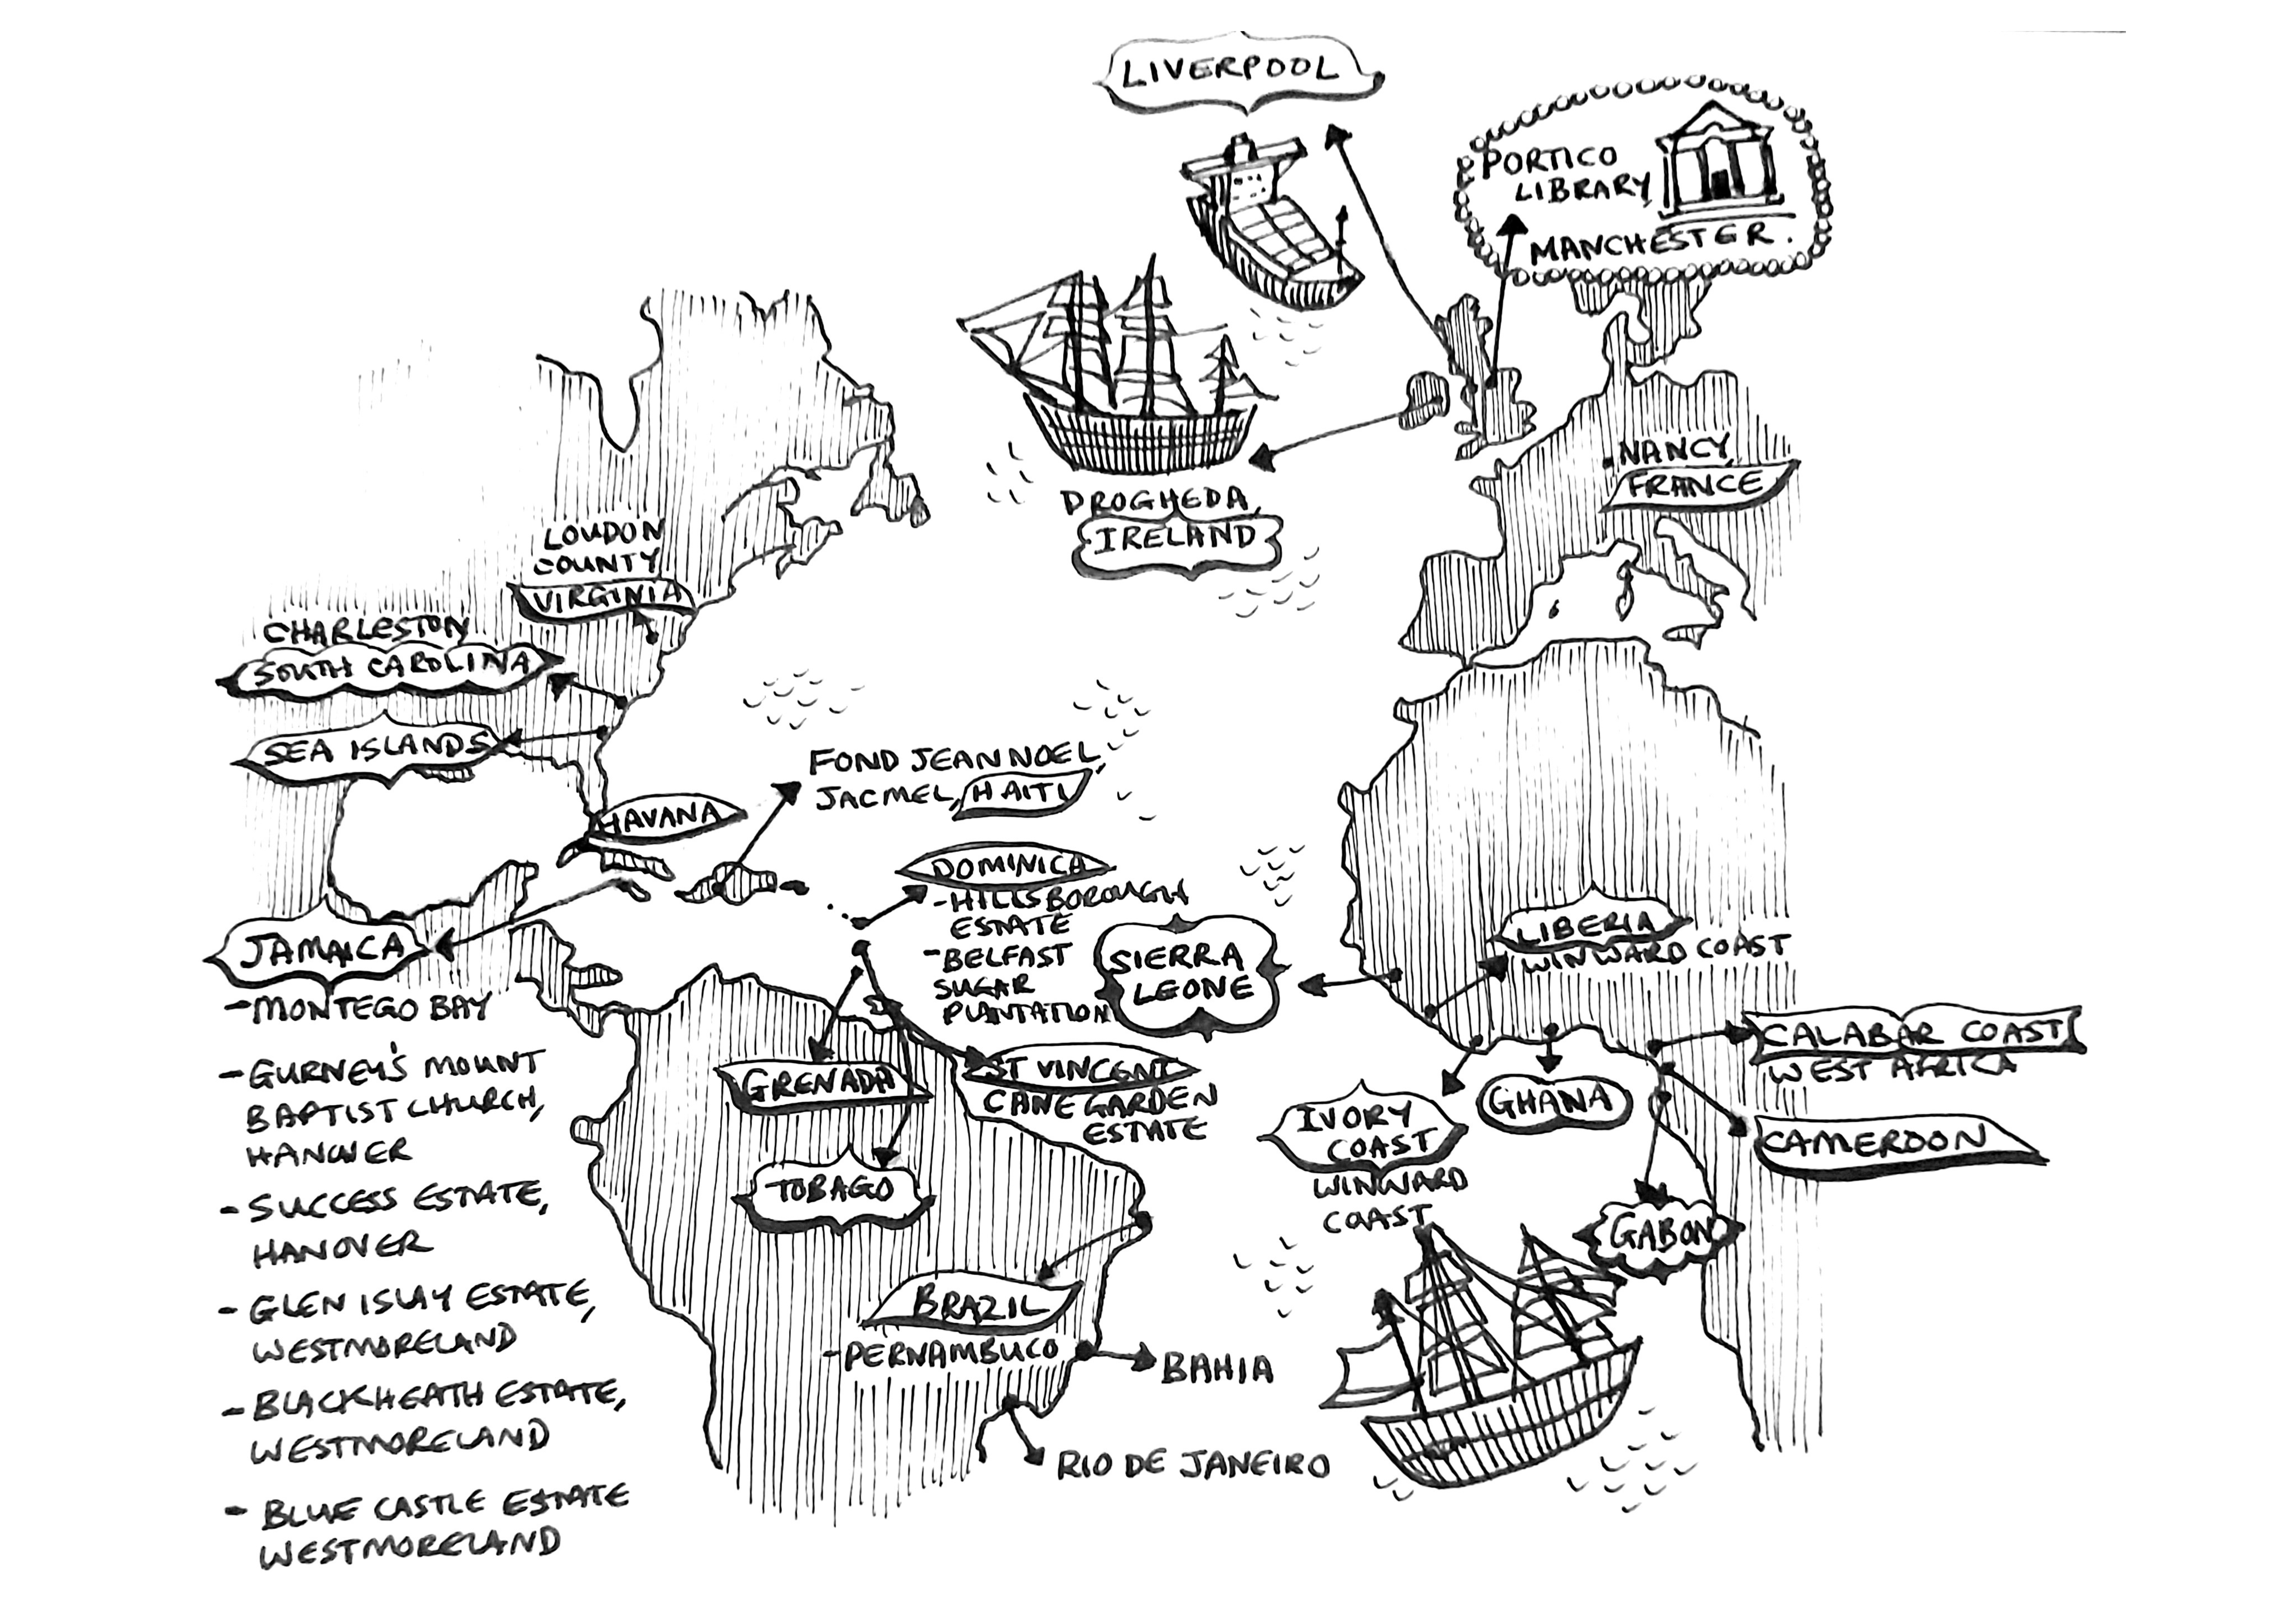 LIVERPOOL
PORTICO
LIBRARY,
MANCHESTER.
DROGHEDA,
IRELAND
NANCY,
FRANCE
LOUDON
COUNTY
VIRGINIA
CHARLESTON
SOUTH CAROLINA
SEA ISLANDS
HAVANA
FOND JEAN NOEL,
JACMEL, HAITI
DOMINICA
-HILLSBOROUGH
ESTATE
-BELFAST
SUGAR
PLANTATION
SIERRA
LEONE
LIBERIA
WINWARD COAST
JAMAICA
-MONTEGO BAY
-GURNEY'S MOUNT
BAPTIST CHURCH,
HANOVER
-SUCCESS ESTATE,
HANOVER
-GLEN ISLAY ESTATE,
WESTMORELAND
-BLACKHEATH ESTATE,
WESTMORELAND
-BLUE CASTLE ESTATE
WESTMORELAND
GRENADA
ST VINCENT
CANE GARDEN
ESTATE
TOBAGO
IVORY
COAST
WINWARD
COAST
GHANA
CALABAR COAST
WEST AFRICA
CAMEROON
GABON
BRAZIL
-PERNAMBUCO
BAHIA
RIO DE JANEIRO